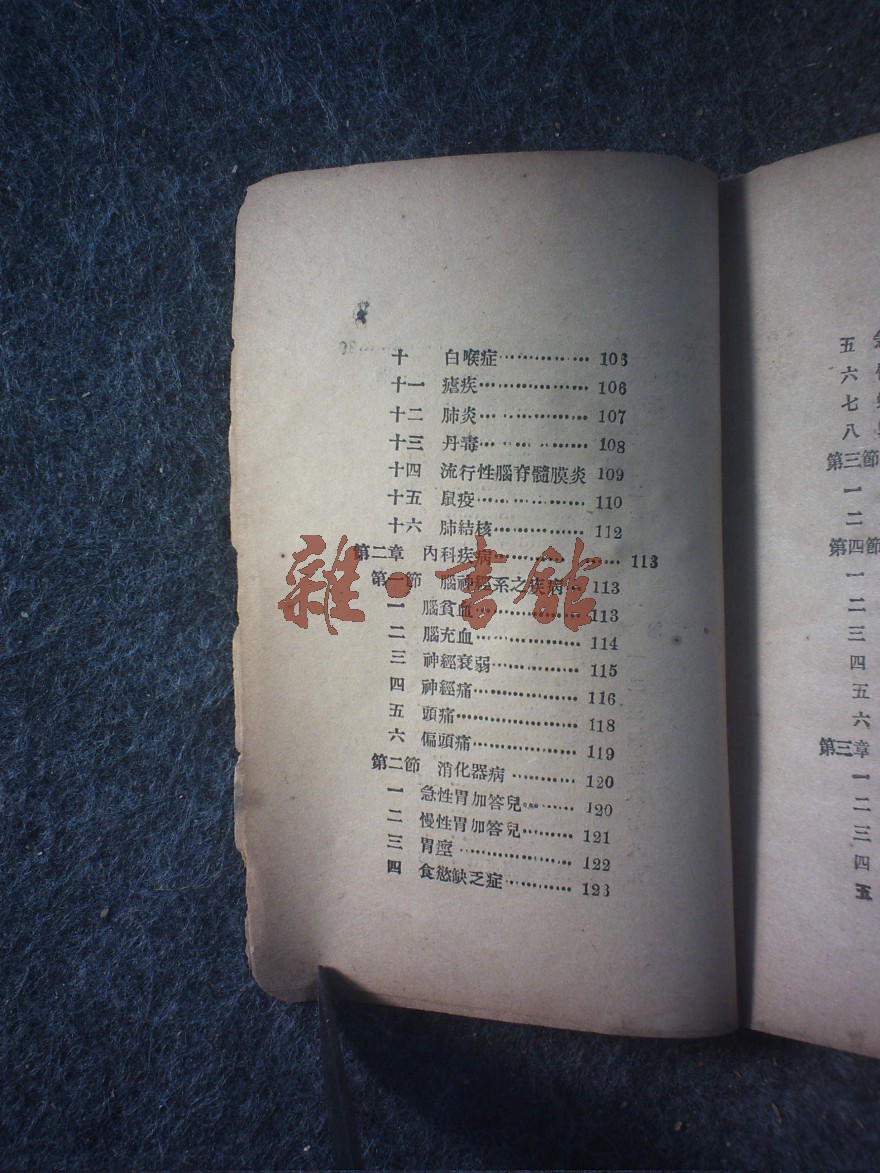 十 白喉症 ················ 105
十一 瘧疾 ················ 106
十二 肺炎 ················ 107
十三 丹毒 ················ 108
十四 流行性腦脊髓膜炎 109
十五 鼠疫 ················ 110
十六 肺結核 ················ 112
第二章 內科疾病 ················ 113
第一節 腦神經系之疾病 ··· 113
一 腦貧血 ················ 113
二 腦充血 ················ 114
三 神經衰弱 ················ 115
四 神經痛 ················ 116
五 頭痛 ················ 118
六 偏頭痛 ················ 119
第二節 消化器病 ············ 120
一 急性胃加答兒 ········· 120
二 慢性胃加答兒 ········· 121
三 胃痙 ················ 122
四 食慾缺乏症 ············ 123
雜·書館
五
六
七
八
第三節
一
二
第四節
一
二
三
四
五
六
第三章
一
二
三
四
五